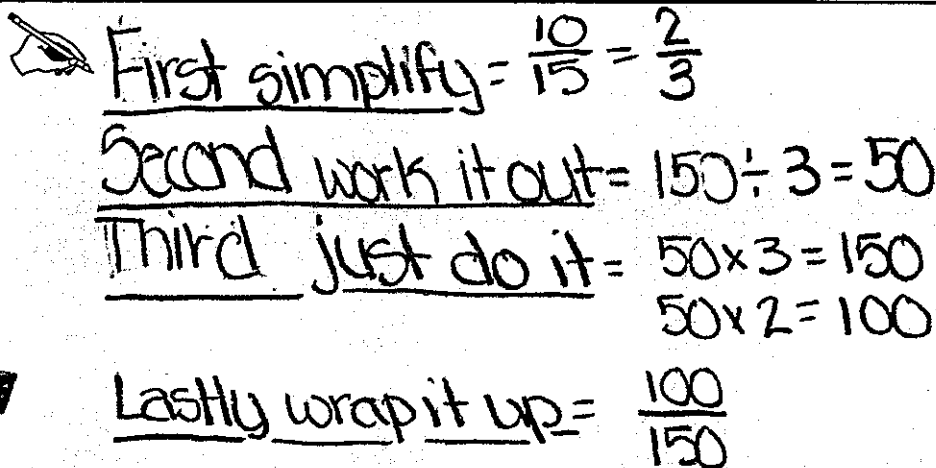 First simplify = 10/15 = 2/3
Second work it out = 150 ÷ 3 = 50
Third just do it = 50 x 3 = 150
50 x 2 = 100
Lastly wrap it up = 100/150